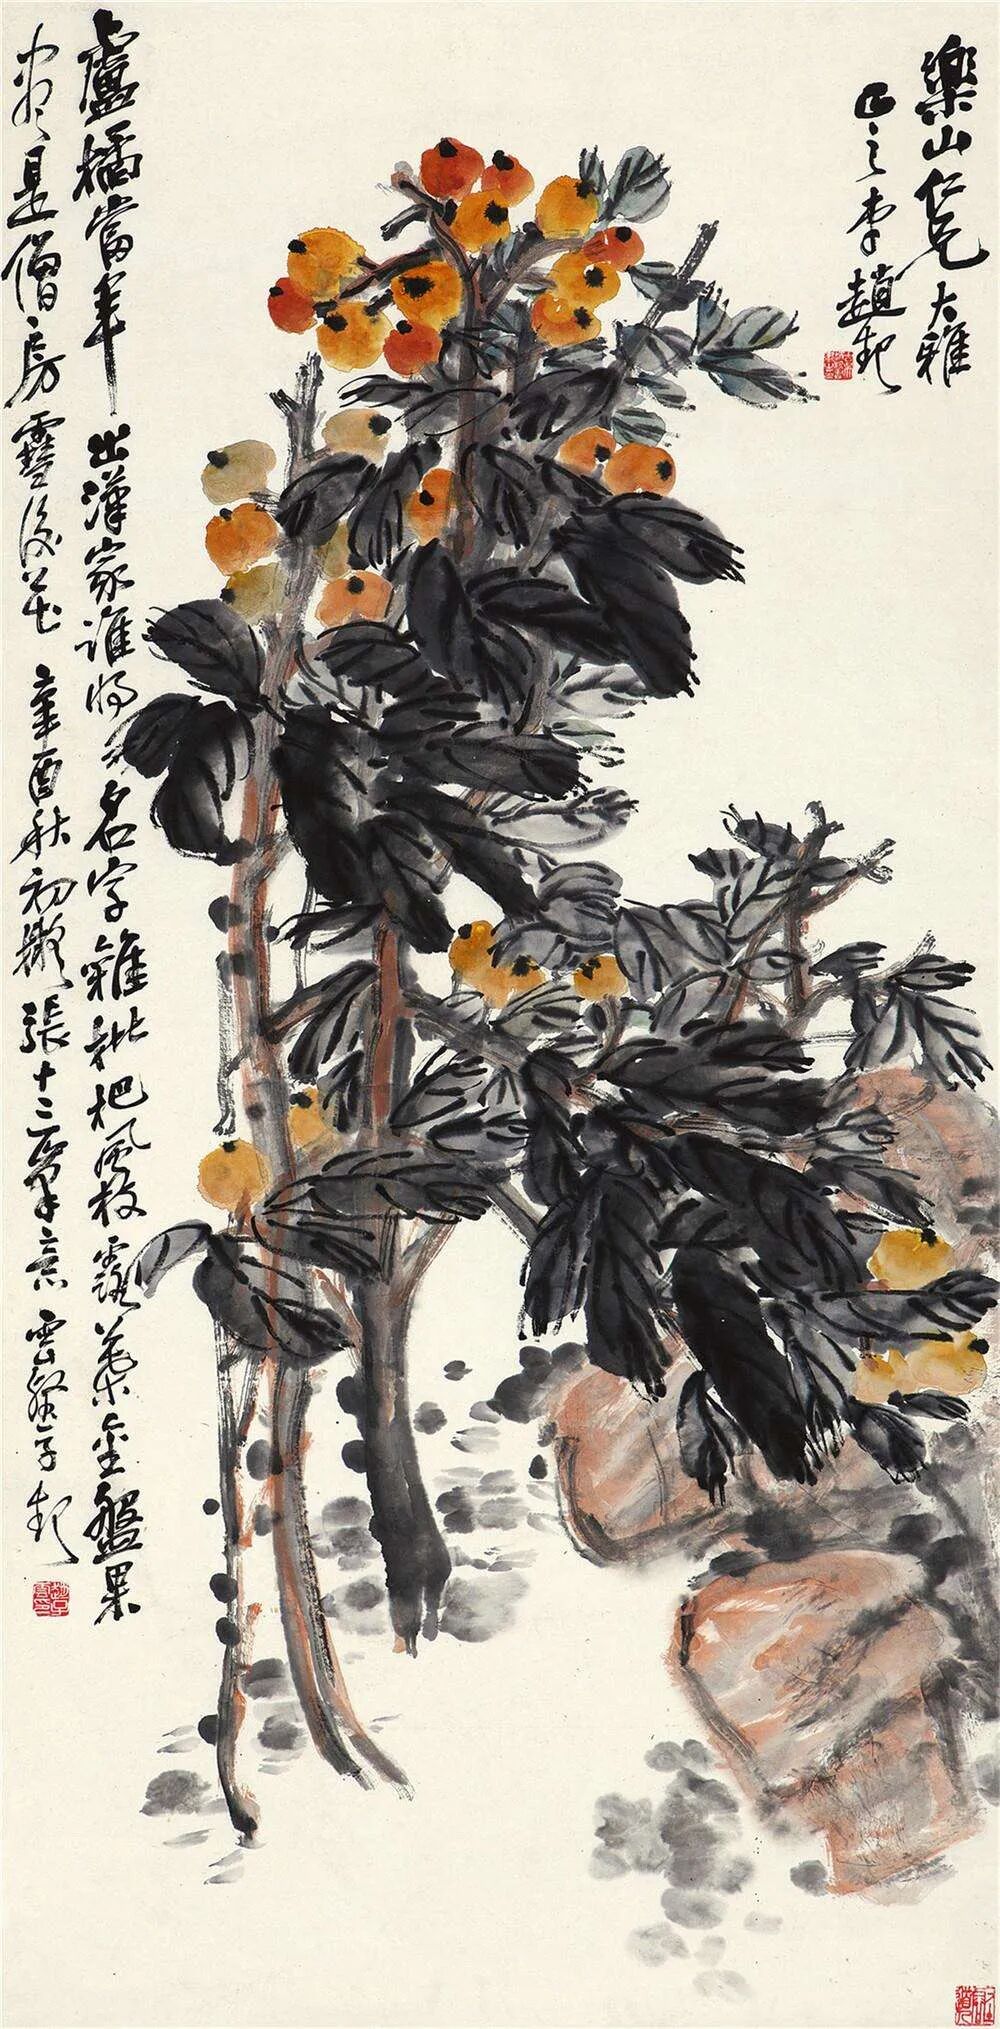 樂山仁兄大雅
正之弟趙起
盧橘當年出漢家誰將名字雜枇杷風枝露葉金盤果
盡是僧房雪後花辛酉秋初撫張十二筆意雲壑子起